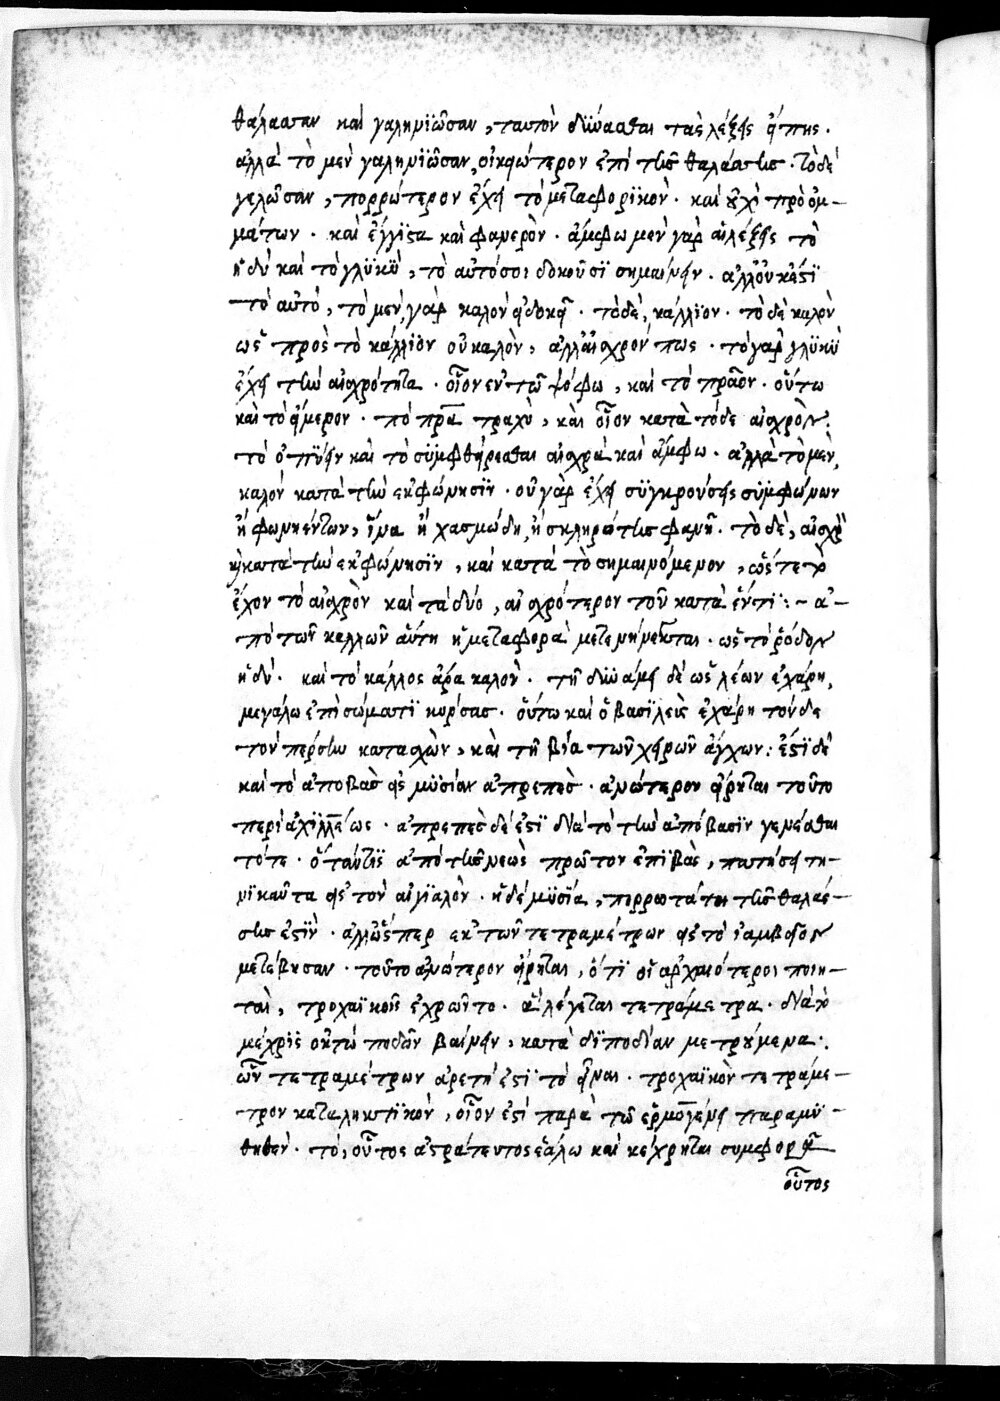 θάλασσαν καὶ γαληνϊῶσαν, ταυτὸν δϋνασθαι τὰς λέξεις εἴπης.
ἀλλὰ τὸ μὲν γαληνϊῶσαν, οἰκειότερον ἐπὶ τῆς θαλάσσης. τὸ δὲ
γελῶσαν, πορρώτερον ἔχει τὸ μεταφορϊκὸν. καὶ οὐχὶ πρὸ ὀμ-
μάτων. καὶ ἔγγϊστα καὶ φανερὸν. ἄμφω μὲν γὰρ αἱ λέξεις τὸ
ἡδὺ καὶ τὸ γλϋκὺ, τὸ αὐτό σοι δοκοῦσϊ σημαίνειν. ἀλλ' οὐκ ἔστϊ
τὸ αὐτὸ, τὸ μὲν γὰρ καλὸν εἰδοκεῖ. τὸ δὲ, κάλλϊον. τὸ δὲ καλὸν
ὡς πρὸς τὸ κάλλϊον οὐ καλὸν, ἀλλ' αἶσχρον πως. τὸ γὰρ γλϋκὺ
ἔχει τὴν αἰσχρότητα. οἷον ἐν τῶ ψόφω, καὶ τὸ πρᾶον. οὕτω
καὶ τὸ ἥμερον. τὸ πρᾶ τραχὺ, καὶ οἷον κατὰ τόδε αἰσχρὸν.
τὸ ὀπϋίειν καὶ τὸ σϋμφθείρεσθαι αἰσχρὰ καὶ ἄμφω. ἀλλὰ τὸ μὲν,
καλὸν κατὰ τὴν ἐκφώνησϊν. οὐ γὰρ ἔχει σϋγκρούσεις σϋμφώνων
ἢ φωνηέντων, ἵνα ἢ χασμώδη, ἢ σκληρότης φανῆ. τὸ δὲ, αἰσχρὸν
καὶ κατὰ τὴν ἐκφώνησϊν, καὶ κατὰ τὸ σημαινόμενον, ὥστε τὸ
ἔχον τὸ αἰσχρὸν κατὰ τὰ δύο, αἰσχρότερον τοῦ κατὰ ἕν τϊ:~ ἀ-
πὸ τῶν καλλῶν αὕτη ἡ μεταφορὰ μετενήνεκται. ὡς τὸ ῥόδον
ἡδὺ. καὶ τὸ κάλλος ἄρα καλὸν. τῇ δϋνάμει δὲ ὡς λέων ἐχάρη,
μεγάλω ἐπὶ σώματϊ κυρσας. οὕτω καὶ ὁ βασϊλεὺς ἐχάρη τόνδε
τὸν πέρσην κατασχὼν, καὶ τῇ βία τῶν χειρῶν ἄγχων: ἔστϊ δὲ
καὶ τὸ ἀποβὰς εἰς μϋσίαν ἀπρεπὲς. ἀνώτερον εἴρηται τοῦτο
περὶ ἀχϊλλέως. ἀπρεπὲς δέ ἐστϊ διὰ τὸ τὴν ἀπόβασϊν γενέσθαι
τότε. ὅταν τϊς ἀπὸ τῆς νεὼς πρῶτον ἐπϊβὰς, πατήση τη-
νϊκαῦτα εἰς τὸν αἰγϊαλὸν. ἡ δὲ μϋσΐα, πορρωτάτη τῆς θαλάσ-
σης ἐστϊν. ἀλλ' ὥσπερ ἐκ τῶν τετραμέτρων εἰς τὸ ἰαμβεῖον
μετέβησαν. τοῦτο ἀνώτερον εἴρηται, ὅτϊ οἱ ἀρχαιότεροι ποιη-
ταὶ, τροχαϊκοῖς ἐχρῶντο. ἃ λέγεται τετράμετρα. διὰ τὸ
μέχρϊς ὀκτὼ ποδῶν βαίνειν, κατὰ δϊποδΐαν μετρούμενα.
ὧν τετραμέτρων ἀρετή ἐστϊ τὸ εἶναι. τροχαϊκὸν τετράμε-
τρον καταληκτϊκὸν, οἷόν ἐστὶ παρὰ τῶ ἑρμογένει παραμϋ-
θηθὲν. τὸ, οὗτος ἀστράτευτος ἑάλω καὶ κέχρηται συμφορᾶ
οὗτος